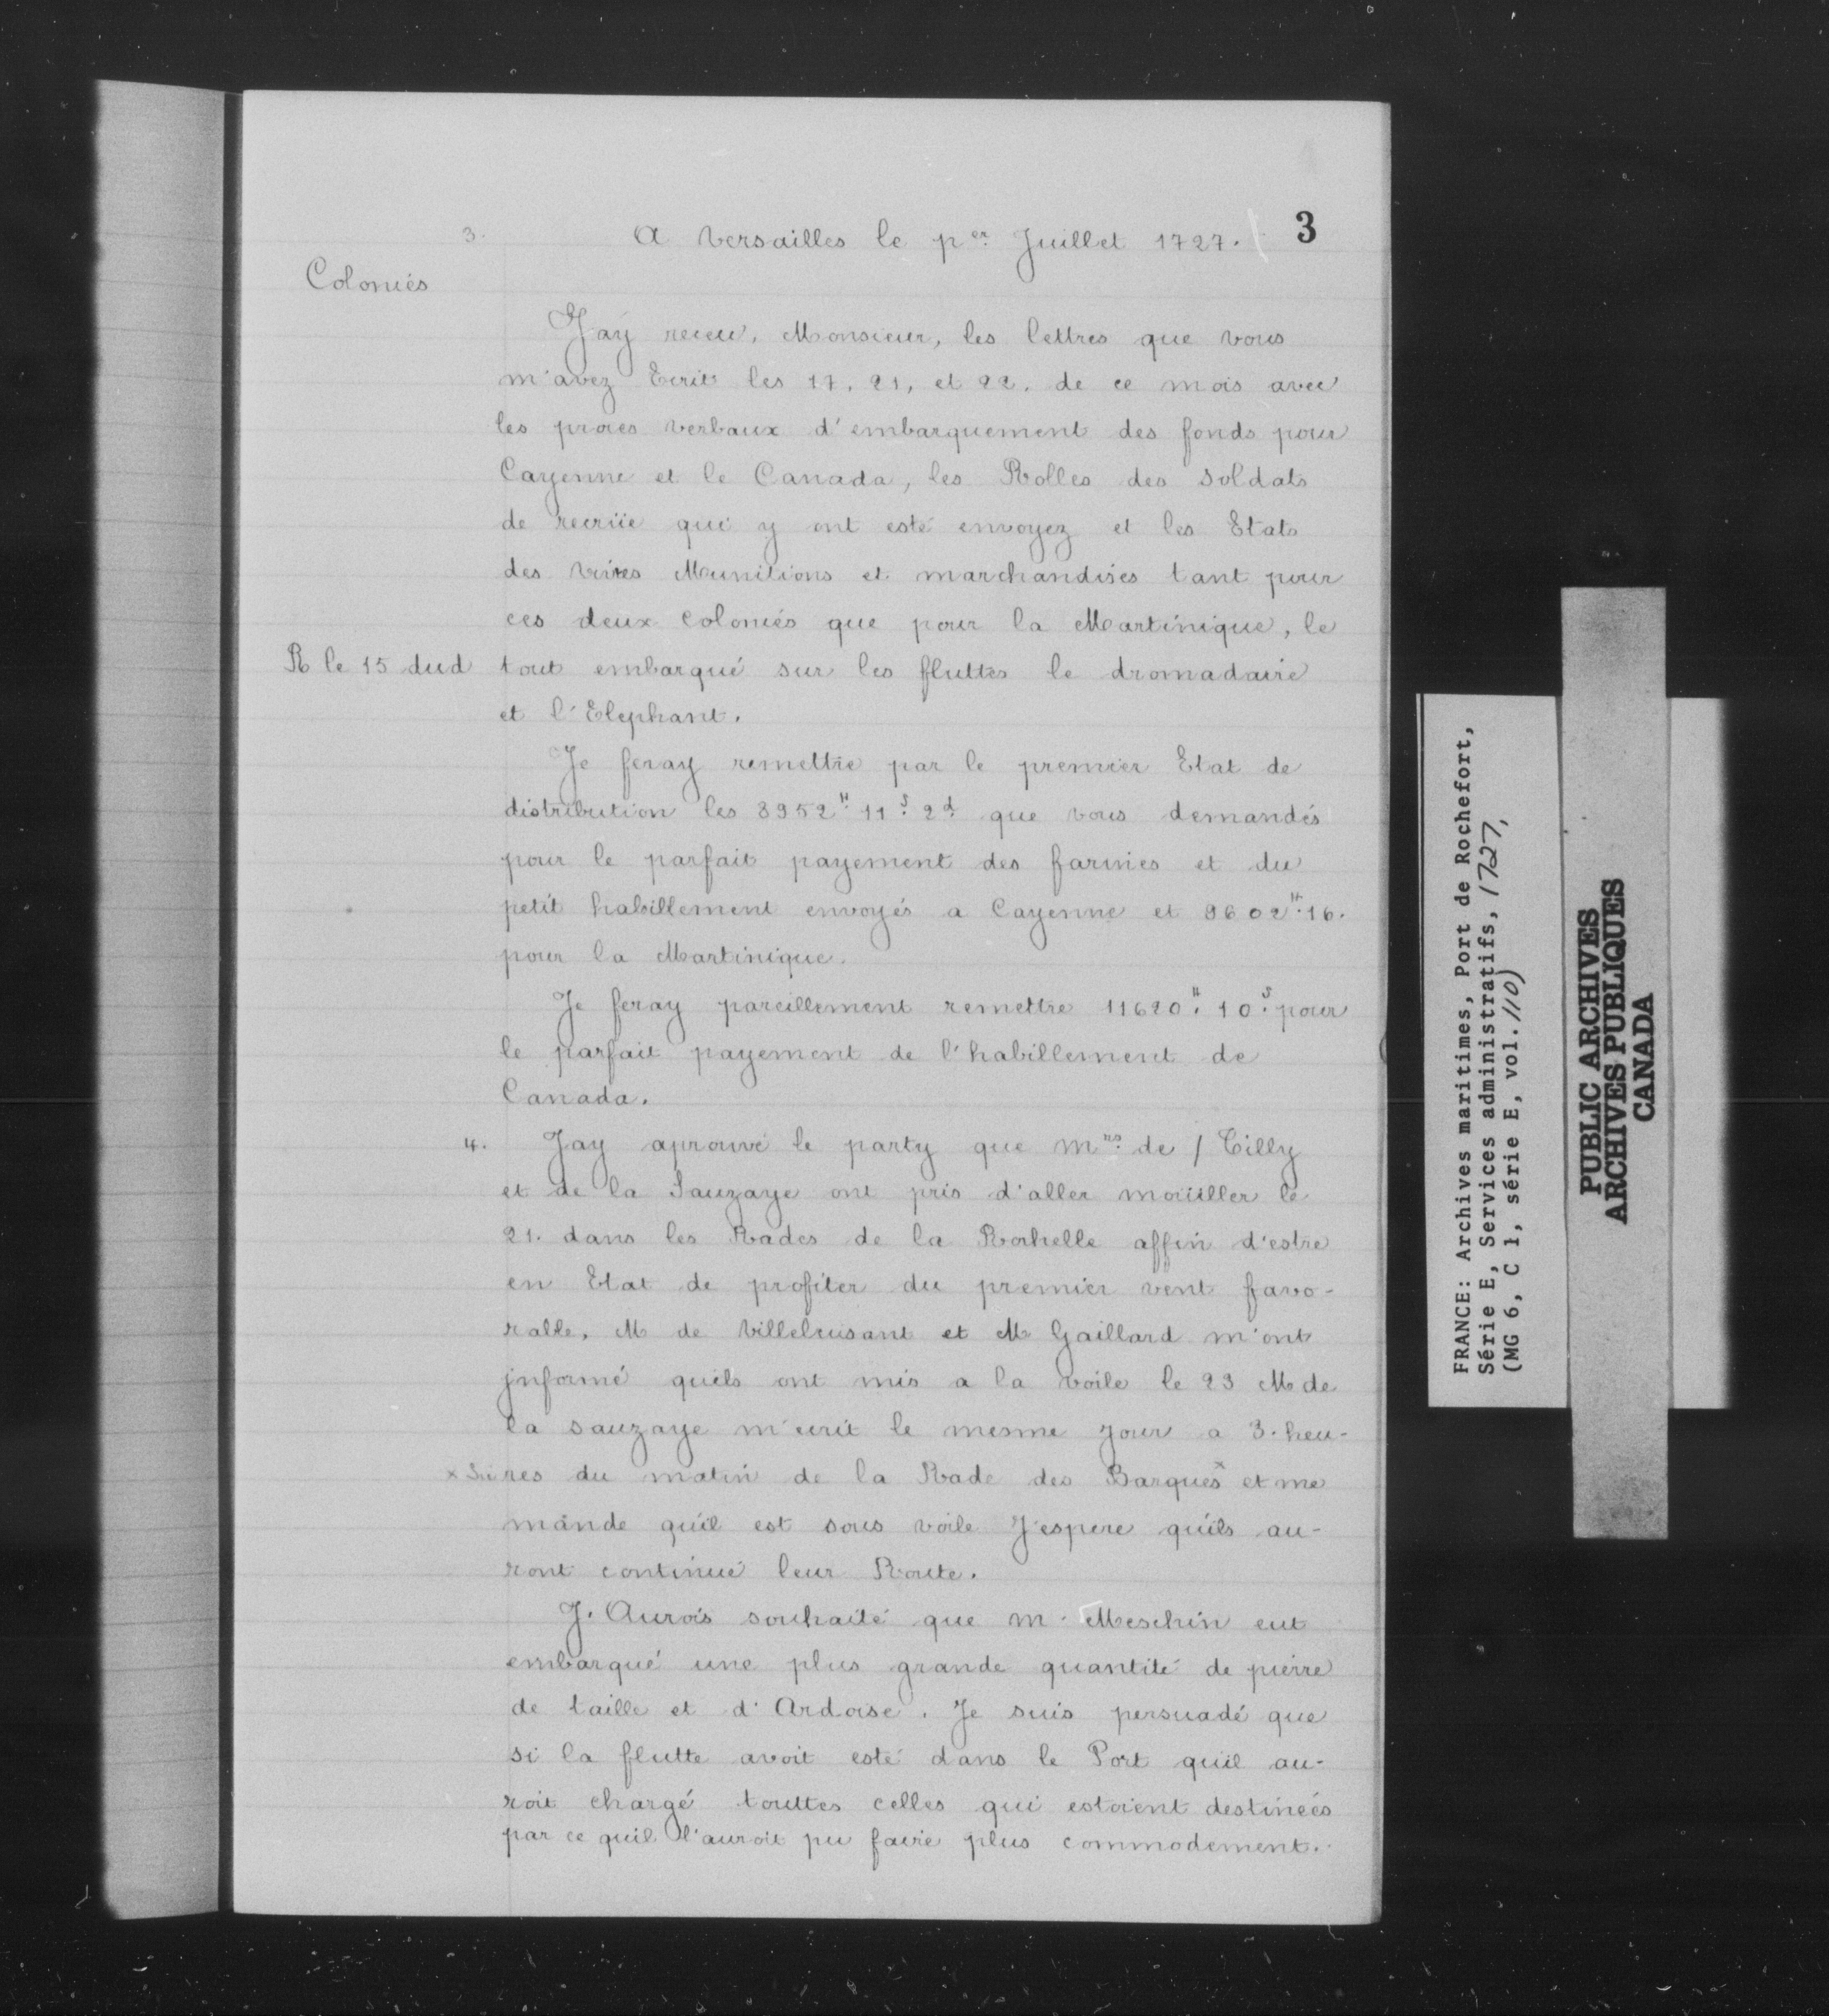 3. A Versailles le per Juillet 1727. 3
Colonies
Jay receu, Monsieur, les lettres que vous
m'avez Ecrit les 17. 21, et 22. de ce mois avec
les proces verbaux d'embarquement des fonds pour
Cayenne et le Canada, les Rolles des soldats
de recrüe qui y ont esté envoyez et les Etats
des vivres Munitions et marchandises tant pour
ces deux colonies que pour la Martinique, le
R le 15 dud tout embarqué sur les fluttes le dromadaire
et l'Elephant.
Je feray remettre par le premier Etat de
distribution les 8952# 11s 2d que vous demandés
pour le parfait payement des farines et du
petit habillement envoyés a Cayenne et 9602# 16.
pour la Martinique.
Je feray pareillement remettre 11620# 10s pour
le parfait payement de l'habillement de
Canada.
4. Jay aprouvé le party que mrs de / Tilly
et de la Sauzaye ont pris d'aller moüiller le
21. dans les Rades de la Rochelle affin d'estre
en Etat de profiter du premier vent favo-
rable, M de et M Gaillard m'ont
jnformé quils ont mis a la voile le 23 M de
la sauzaye m'ecrit le mesme jour a 3. heu-
x res du matin de la Rade des Barques x et me
mande qu'il est sous voile J'espere quils au-
ront continué leur Route.
J'Aurois souhaité que m. Meschin eut
embarqué une plus grande quantité de pierre
de taille et d'Ardoise. Je suis persuadé que
si la flutte avoit esté dans le Port quil au-
roit chargé touttes celles qui estoient destinées
par ce quil l'auroit pu faire plus commodement.
FRANCE: Archives maritimes, Port de Rochefort,
Série E, Services administratifs, 1727,
(MG 6, C 1, série E, vol. 110)
PUBLIC ARCHIVES
ARCHIVES PUBLIQUES
CANADA